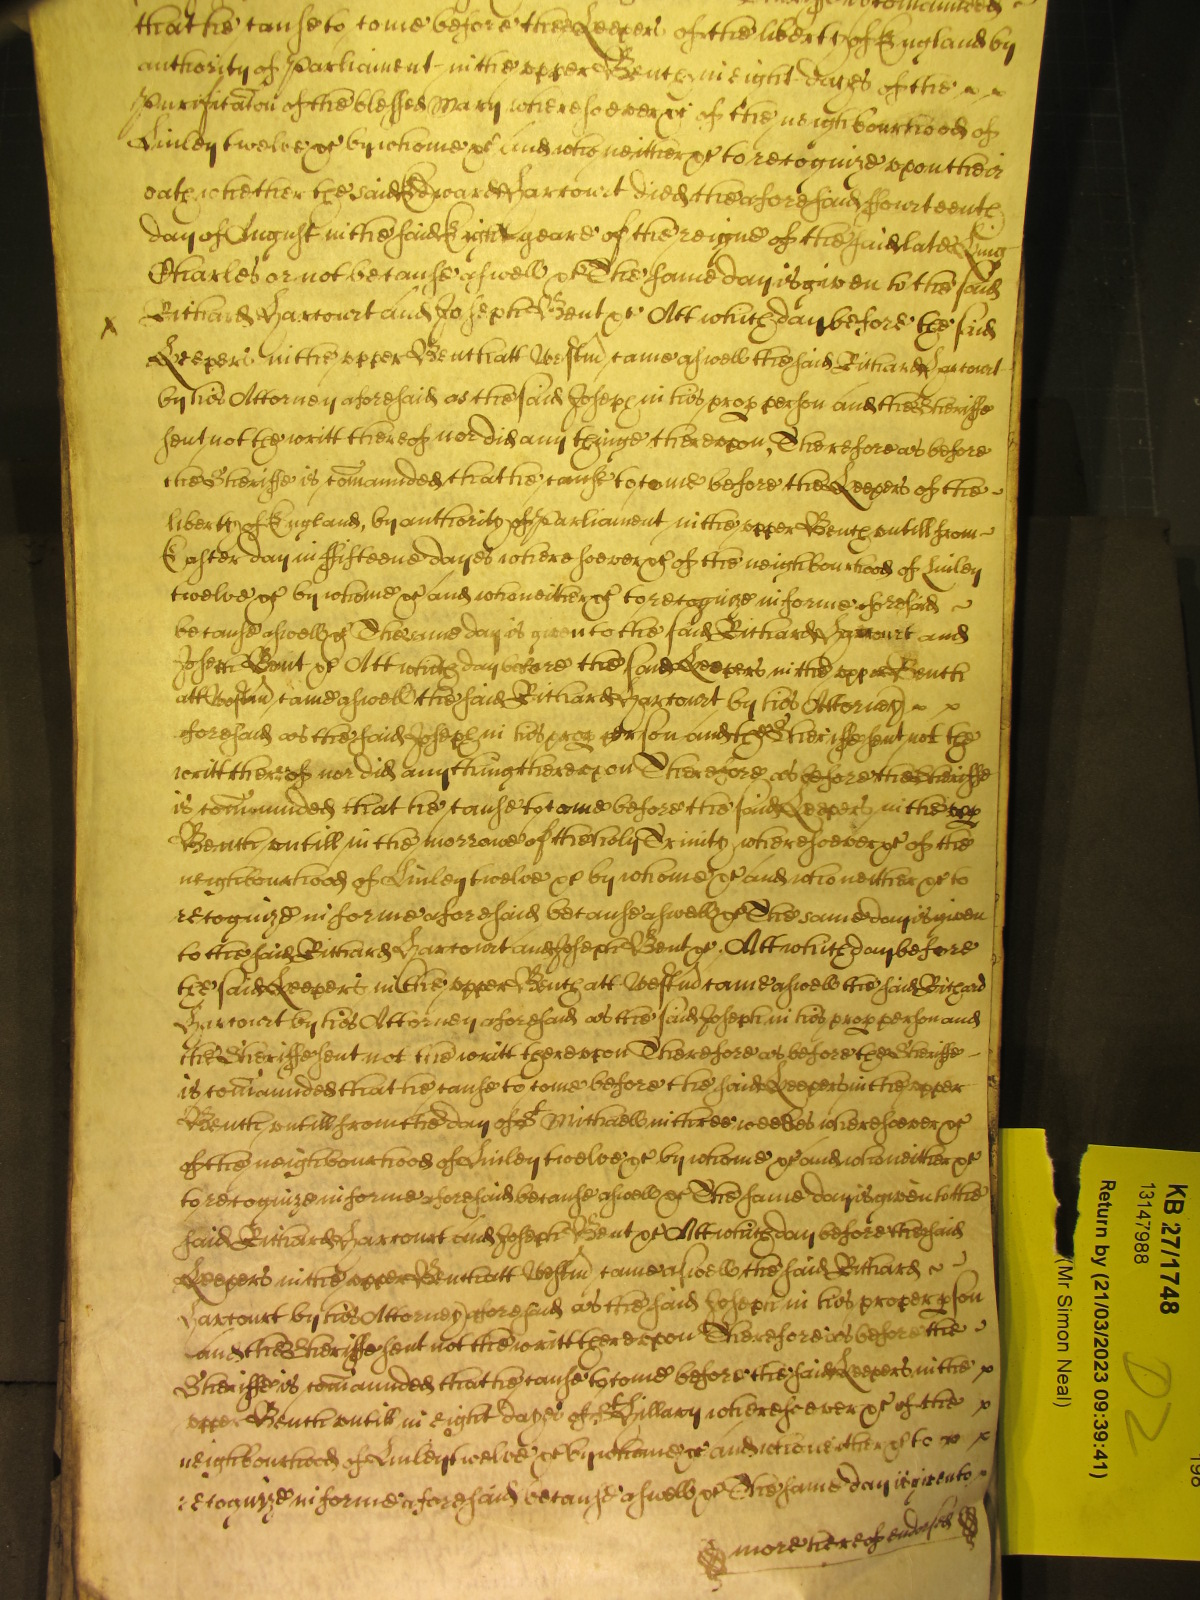 comaunded
that he cause to come before the Keepers of the liberty of England by
authority of Parliament in the upper Bench in eight dayes of the
Purificacon of the blessed Mary wheresoever &c of the neighbourhood of
Linley twelve &c by whome &c And who neither &c to recognize upon their
oath whether the said Edward Harcourt died the aforesaid ffourteenth
day of August in the said Eight yeare of the reigne of the said late King
Charles or not because aswell &c The same day is given to the said
Richard Harcourt and Joseph Bent &c Att which day before the said
x
Keepers in the upper Bench att Westm came aswell the said Richard Harcourt
by his Attorney aforesaid as the said Joseph in his prop person and the Sheriffe
sent not the writt thereof nor did any thinge thereupon, Therefore as before
the Sheriffe is comaunded that he cause to come before the Keepers of the
liberty of England, by authority of Parliament in the upper Bench untill from
Easter day in ffifteene dayes wheresoever &c of the neighbourhood of Linley
twelve &c by whome &c and who neither &c to recognize in forme aforesaid
because aswell &c The same day is given to the said Richard Harcourt and
Joseph Bent &c Att which day before the said Keepers in the upper Bench
att Westm came aswell the said Richard Harcourt by his Attorney
aforesaid as the said Joseph in his prop person and the Sheriffe sent not the
writt thereof nor did any thing thereupon Therefore as before the Sheriffe
is comaunded that he cause to come before the said Keepers in the upp
Bench untill in the morrowe of the holy Trinity wheresoever &c of the
neighbourhood of Linley twelve &c by whome &c and who neither &c to
recognize in forme aforesaid because aswell &c The same day is given
to the said Richard Harcourt and Joseph Bent &c. Att which day before
the said Keepers in the upper Bench att Westm came aswell the said Richard
Harcourt by his Attorney aforesaid as the said Joseph in his prop person and
the Sheriffe sent not the writt thereupon Therefore as before the Sheriffe
is comaunded that he cause to come before the said Keepers in the upper
Bench untill from the day of St Michaell in three weekes wheresoever &c
of the neighbourhood of Linley twelve &c by whome &c and who neither &c
to recognize in forme aforesaid because aswell &c The same day is given to the
said Richard Harcourt and Joseph Bent &c Att which day before the said
Keepers in the upper Bench att Westm came aswell the said Richard
Harcourt by his Attorney aforesaid as the said Joseph in his proper pson
and the Sheriffe sent not the writt thereupon Therefore as before the
Sheriffe is comaunded that he cause to come before the said Keepers in the
upper Bench untill in eight dayes of St Hillary wheresoever &c of the
neighbourhood of Linley twelve &c by whome &c and who neither &c to
recognize in forme aforesaid because aswell &c The same day is given to
more hereof endorsed
KB 27/1748
13147988
Return by (21/03/2023 09:39:41)
(Mr Simon Neal)
D2